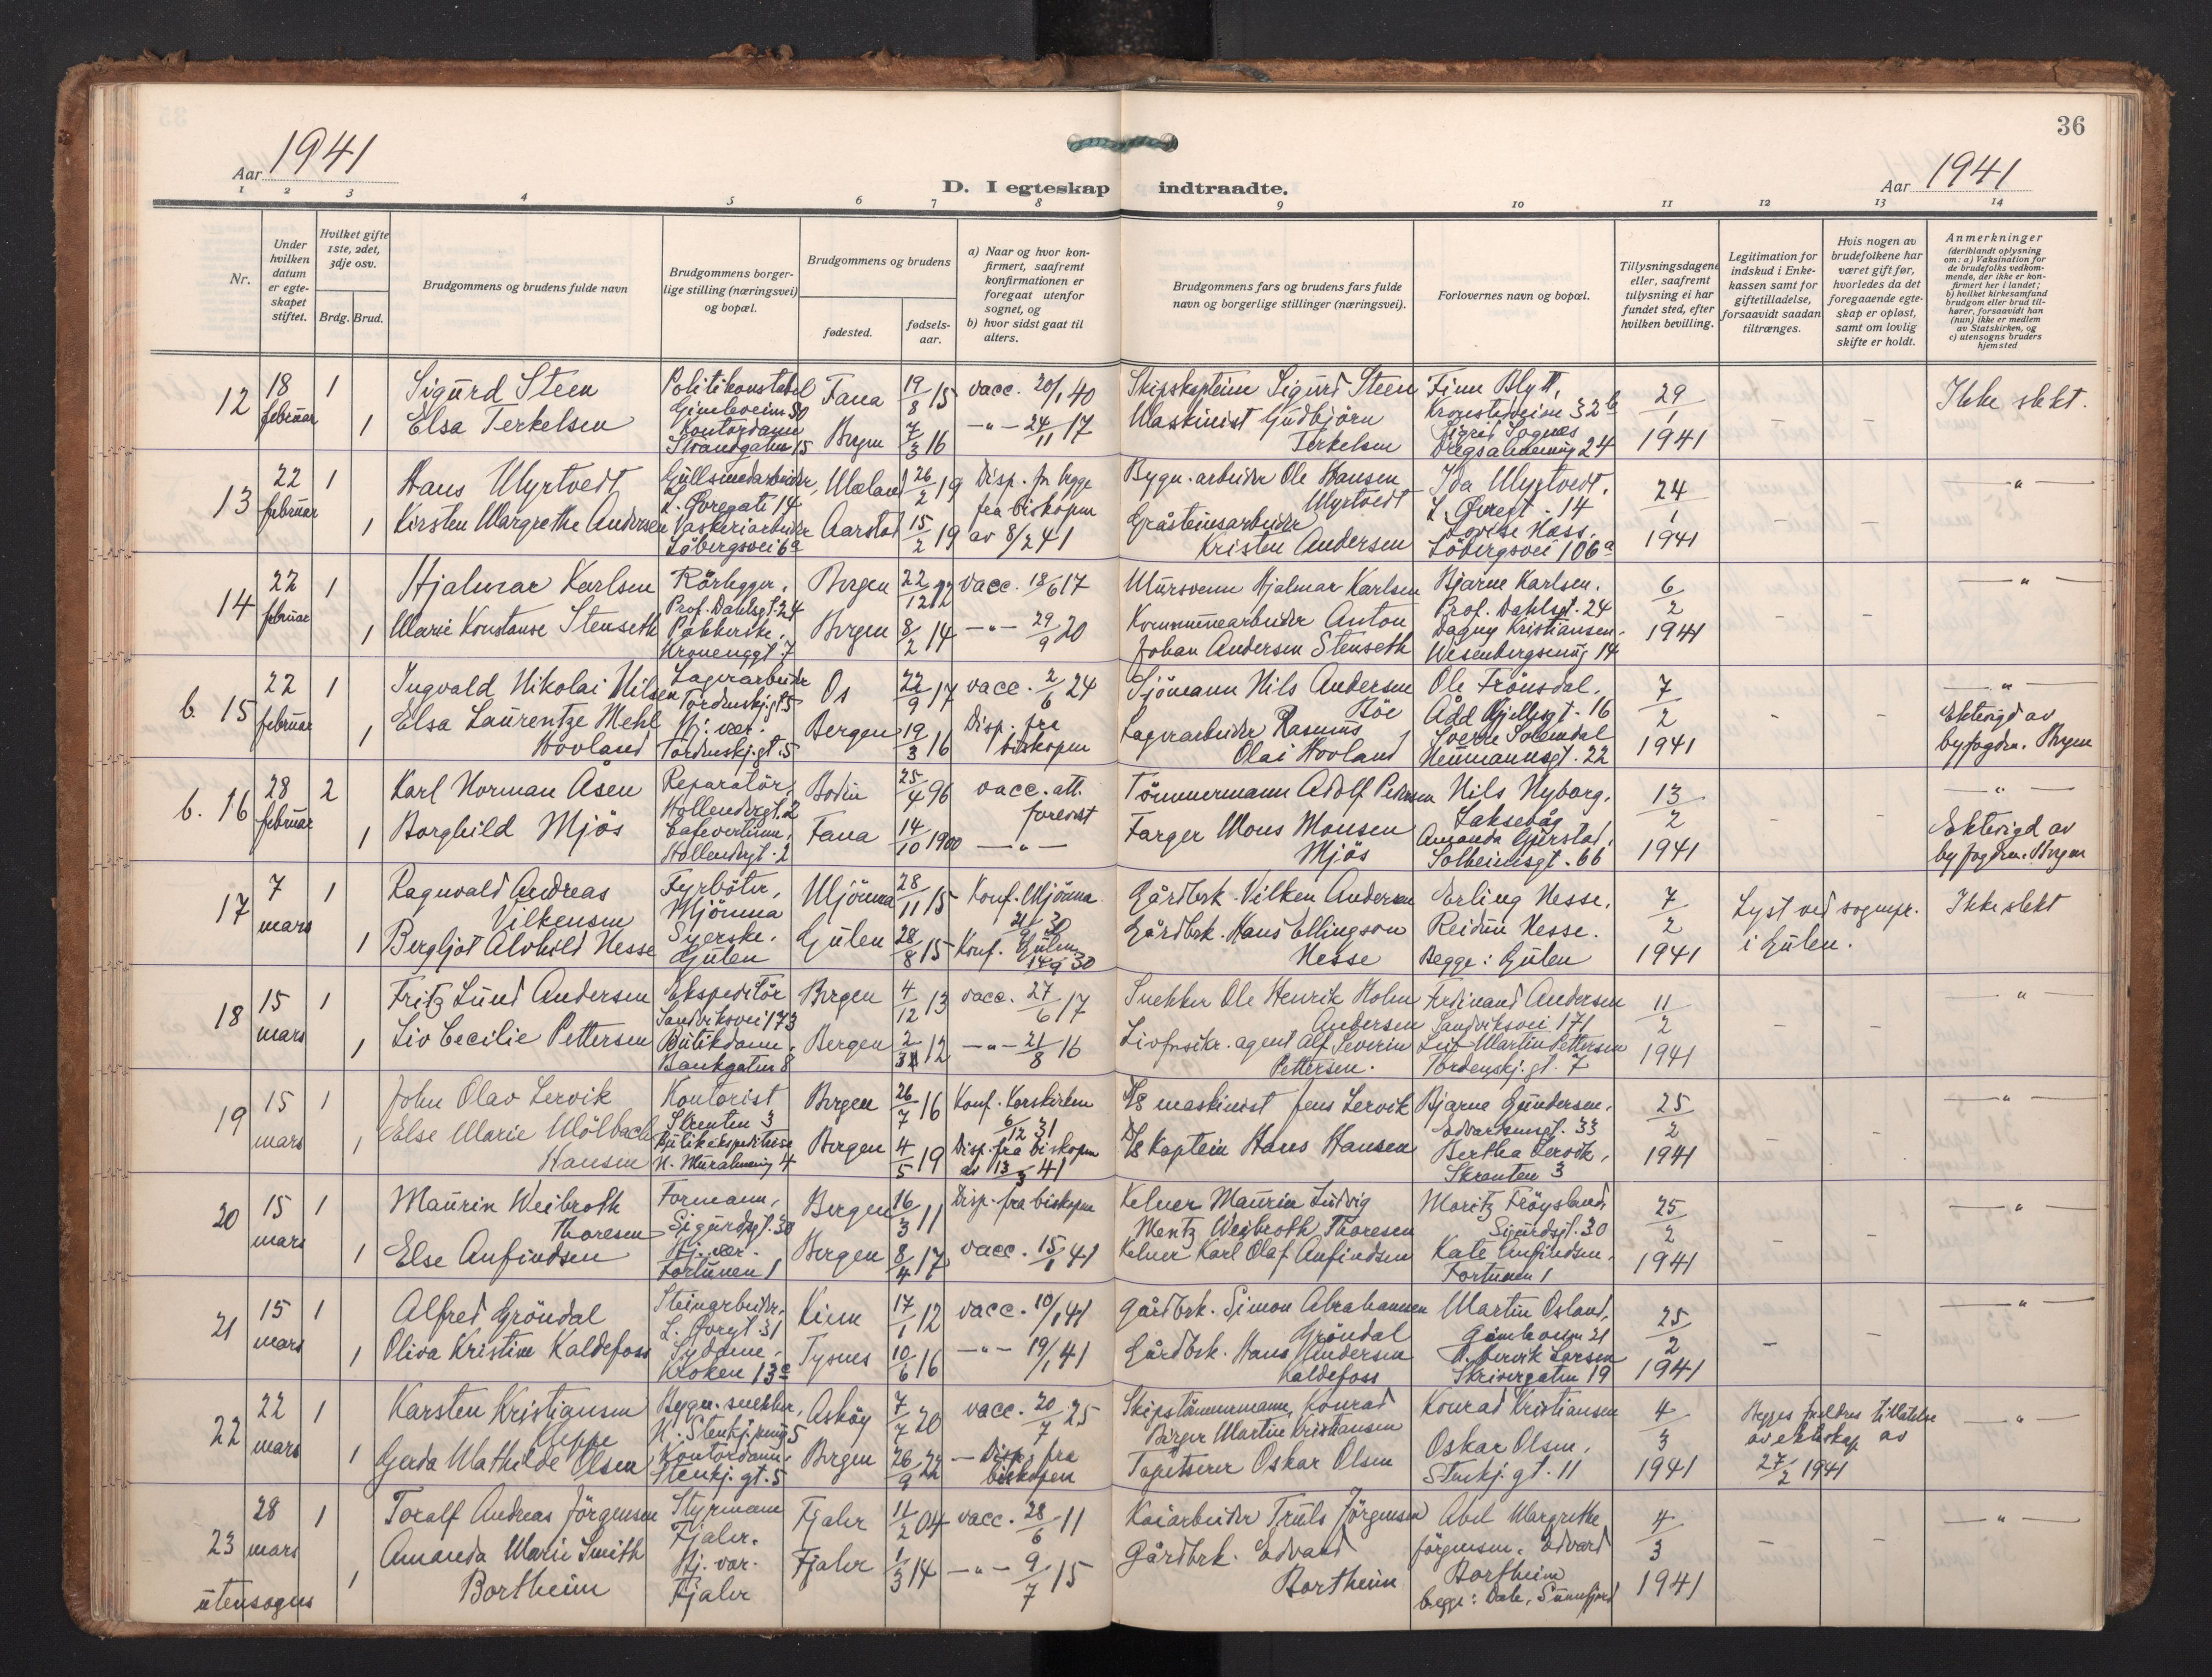 36
Aar 1941
D. I egteskap indtraadte.
Aar 1941
1 2 3 4 5 6 7 8 9 10 11 12 13 14
Nr.
Under hvilken datum er egteskapet stiftet.
Hvilket gifte 1ste, 2det, 3dje osv.
Brdg. Brud.
Brudgommens og brudens fulde navn
Brudgommens borgerlige stilling (næringsvei) og bopæl.
Brudgommens og brudens
fødested.
fødselsaar.
a) Naar og hvor konfirmert, saafremt konfirmationen er foregaat utenfor sognet, og
b) hvor sidst gaat til alters.
Brudgommens fars og brudens fars fulde navn og borgerlige stillinger (næringsvei).
Forlovernes navn og bopæl.
Tillysningsdagene eller, saafremt tillysning ei har fundet sted, efter hvilken bevilling.
Legitimation for indskud i Enkekassen samt for giftetilladelse, forsaavidt saadan tiltrænges.
Hvis nogen av brudefolkene har været gift før, hvorledes da det foregaaende egteskap er opløst, samt om lovlig skifte er holdt.
Anmerkninger
(deriblandt oplysning om: a) Vaksination for de brudefolks vedkommende, der ikke er konfirmert her i landet; b) hvilket kirkesamfund brudgom eller brud tilhører, forsaavidt han (hun) ikke er medlem av Statskirken, og c) utensogns bruders hjemsted
12 18 februar 1 Sigurd Steen Politikonstabel Gimleveien 50 Fana 19/8 15 vacc. 20/1 40 Skipskaptein Sigurd Steen Finn Blytt, Kronstadveien 32b 29/1 1941 Ikke slekt.
1 Elsa Terkelsen Kontordame Strandgaten 15 Bergen 7/3 16 -"- 24/11 17 Maskinist Gudbjörn Terkelsen Sigrid Sognæs Dregsalmenning 24
13 22 februar 1 Hans Myrtvedt Gullsmedarbeider, L. Øvregate 14 Mæland 26/2 19 Disp. for begge fra biskopen Bygn.arbeider Ole Hansen Myrtvedt Ida Myrtvedt, L. Øvregt. 14 24/1 1941 - - -"-
1 Kirsten Margrethe Andersen Vaskeriarbeider Löbergsvei 6a Aarstad 15/2 19 av 8/2 41 Gråsteinsarbeider Kristen Andersen Lovise Hass, Löbergsvei 106a
14 22 februar 1 Hjalmar Karlsen Rörlegger, Prof. Dahlsgt. 24 Bergen 22/12 12 vacc. 18/6 17 Mursvenn Hjalmar Karlsen Bjarne Karlsen, Prof. Dahlsgt. 24 6/2 1941 - - -"-
1 Marie Konstanse Stenseth Pakkerske, Kroneneggt. 7 Bergen 8/2 14 -"- 29/9 20 Kommunearbeider Anton Johan Andersen Stenseth Dagny Kristiansen, Wesenbergsmug 14
b. 15 22 februar 1 Ingvald Nikolai Nilsen Lagerarbeider Tordenskj.gt 5 Os 22/9 17 vacc. 2/6 24 Sjömann Nils Andersen Böe Ole Frönsdal, Add Gjellesgt. 16 7/2 1941 - - -"-
1 Elsa Laurentze Mehl Hovland Hj. vær. Tordenskj.gt. 5 Bergen 19/3 16 Disp. fra biskopen Lagerarbeider Rasmus Olai Hovland Sverre Solemdal Neumannsgt. 22 Ektevigd av byfogden. Bergen
b. 16 28 februar 2 Karl Norman Åsen Reparatör, Hollendergt. 2 Bodin 25/4 96 vacc. att. forevist Tömmermann Adolf Petersen Nils Nyborg, Laksevåg 13/2 1941 -"-
1 Borghild Mjös Cafevertinne, Hollendergt. 2 Fana 14/10 1900 -"- Farger Mons Monsen Mjös Amanda Gjerstad, Solheimsgt. 66 Ektevigd av byfogden. Bergen
17 7 mars 1 Ragnvald Andreas Vilkensen Fyrböter, Mjömna Mjömna 28/11 15 Konf. Mjömna 21/9 30 Gårdbrk. Vilken Andersen Erling Nesse, 7/2 1941 Lyst ved sognepr. i Gulen. Ikke slekt
1 Bergljot Alvhild Nesse Syerske. Gulen Gulen 28/8 15 Konf. Gulen 14/9 30 Gårdbrk. Hans Ellingson Nesse Reidun Nesse. Begge: Gulen
18 15 mars 1 Fritz Lund Andersen Ekspeditör Sandviksvei 173 Bergen 4/12 13 vacc. 27/6 17 Snekker Ole Henrik Holm Andersen Ferdinand Andersen Sandviksvei 171 11/2 1941 - - -"-
1 Liv Cecilie Pettersen Butikdame, Bankgaten 8 Bergen 2/3 12 -"- 21/8 16 Livforsikr. agent Alf Severin Pettersen. Leif Martin Pettersen Tordenskj.gt. 7
19 15 mars 1 John Olav Lervik Kontorist Skrenten 3 Bergen 26/7 16 Konf. Korskirken 6/12 31 D/S maskinist Jens Lervik Bjarne Gundersen, Edvardsensgt. 33 25/2 1941 - - -"-
1 Else Marie Mölbach Hansen Butikekspeditrise N. Muralmenning 4 Bergen 4/5 19 Disp. fra biskopen av 13/3 41 D/S kaptein Hans Hansen Bertha Lervik, Skrenten 3
20 15 mars 1 Maurin Weibroth Thoresen Formann, Sigurdsgt. 30 Bergen 16/3 11 Disp. fra biskopen Kelner Maurin Ludvig Mentz Weibroth Thoresen Moritz Fröysland, Sigurdsgt. 30 25/2 1941 - - -"-
1 Else Anfindsen Hj. vær. Fortunen 1 Bergen 8/4 17 vacc. 15/1 41 Kelner Karl Olaf Anfindsen Kate Anfindsen, Fortunen 1
21 15 mars 1 Alfred Gröndal Steinarbeider, L. Øvregt. 31 Kinn 17/1 12 vacc. 10/1 41 Gårdbrk. Simon Abrahamsen Gröndal Martin Osland, Gimleveien 21 25/2 1941 - - -"-
1 Oliva Kristine Kaldefoss Sydame, Kroken 13c Tysnes 10/6 16 -"- 19/1 41 Gårdbrk. Hans Andersen Kaldefoss Lervik Larsen Skrivergaten 19
22 22 mars 1 Karsten Kristiansen Kleppe Bygn. snekker, N. Stenkj.smug 5 Asköy 7/7 20 vacc. 20/7 25 Skipstömmermann, Konrad Birger Martin Kristiansen Konrad Kristiansen 4/3 1941 Begges foreldres tillatelse av ekteskap av 27/2 1941 -"-
1 Gerda Mathilde Olsen Kontordame, Stenkj.gt. 5 Bergen 26/9 22 - Disp. fra biskopen Tapetserer Oskar Olsen Oskar Olsen, Stenkj.gt. 11
23 28 mars 1 Toralf Andreas Jörgensen Styrmann Fjaler. Fjaler 11/2 04 vacc. 28/6 11 Kaiarbeider Truls Jörgensen Abel Margrethe Jörgensen. 4/3 1941 - - -"-
utensogns 1 Amanda Marie Smith Bortheim Hj. vær. Fjaler Fjaler 1/3 14 -"- 9/7 15 Gårdbrk. Edvard Bortheim Edvard Bortheim begge: Dale, Sunnfjord